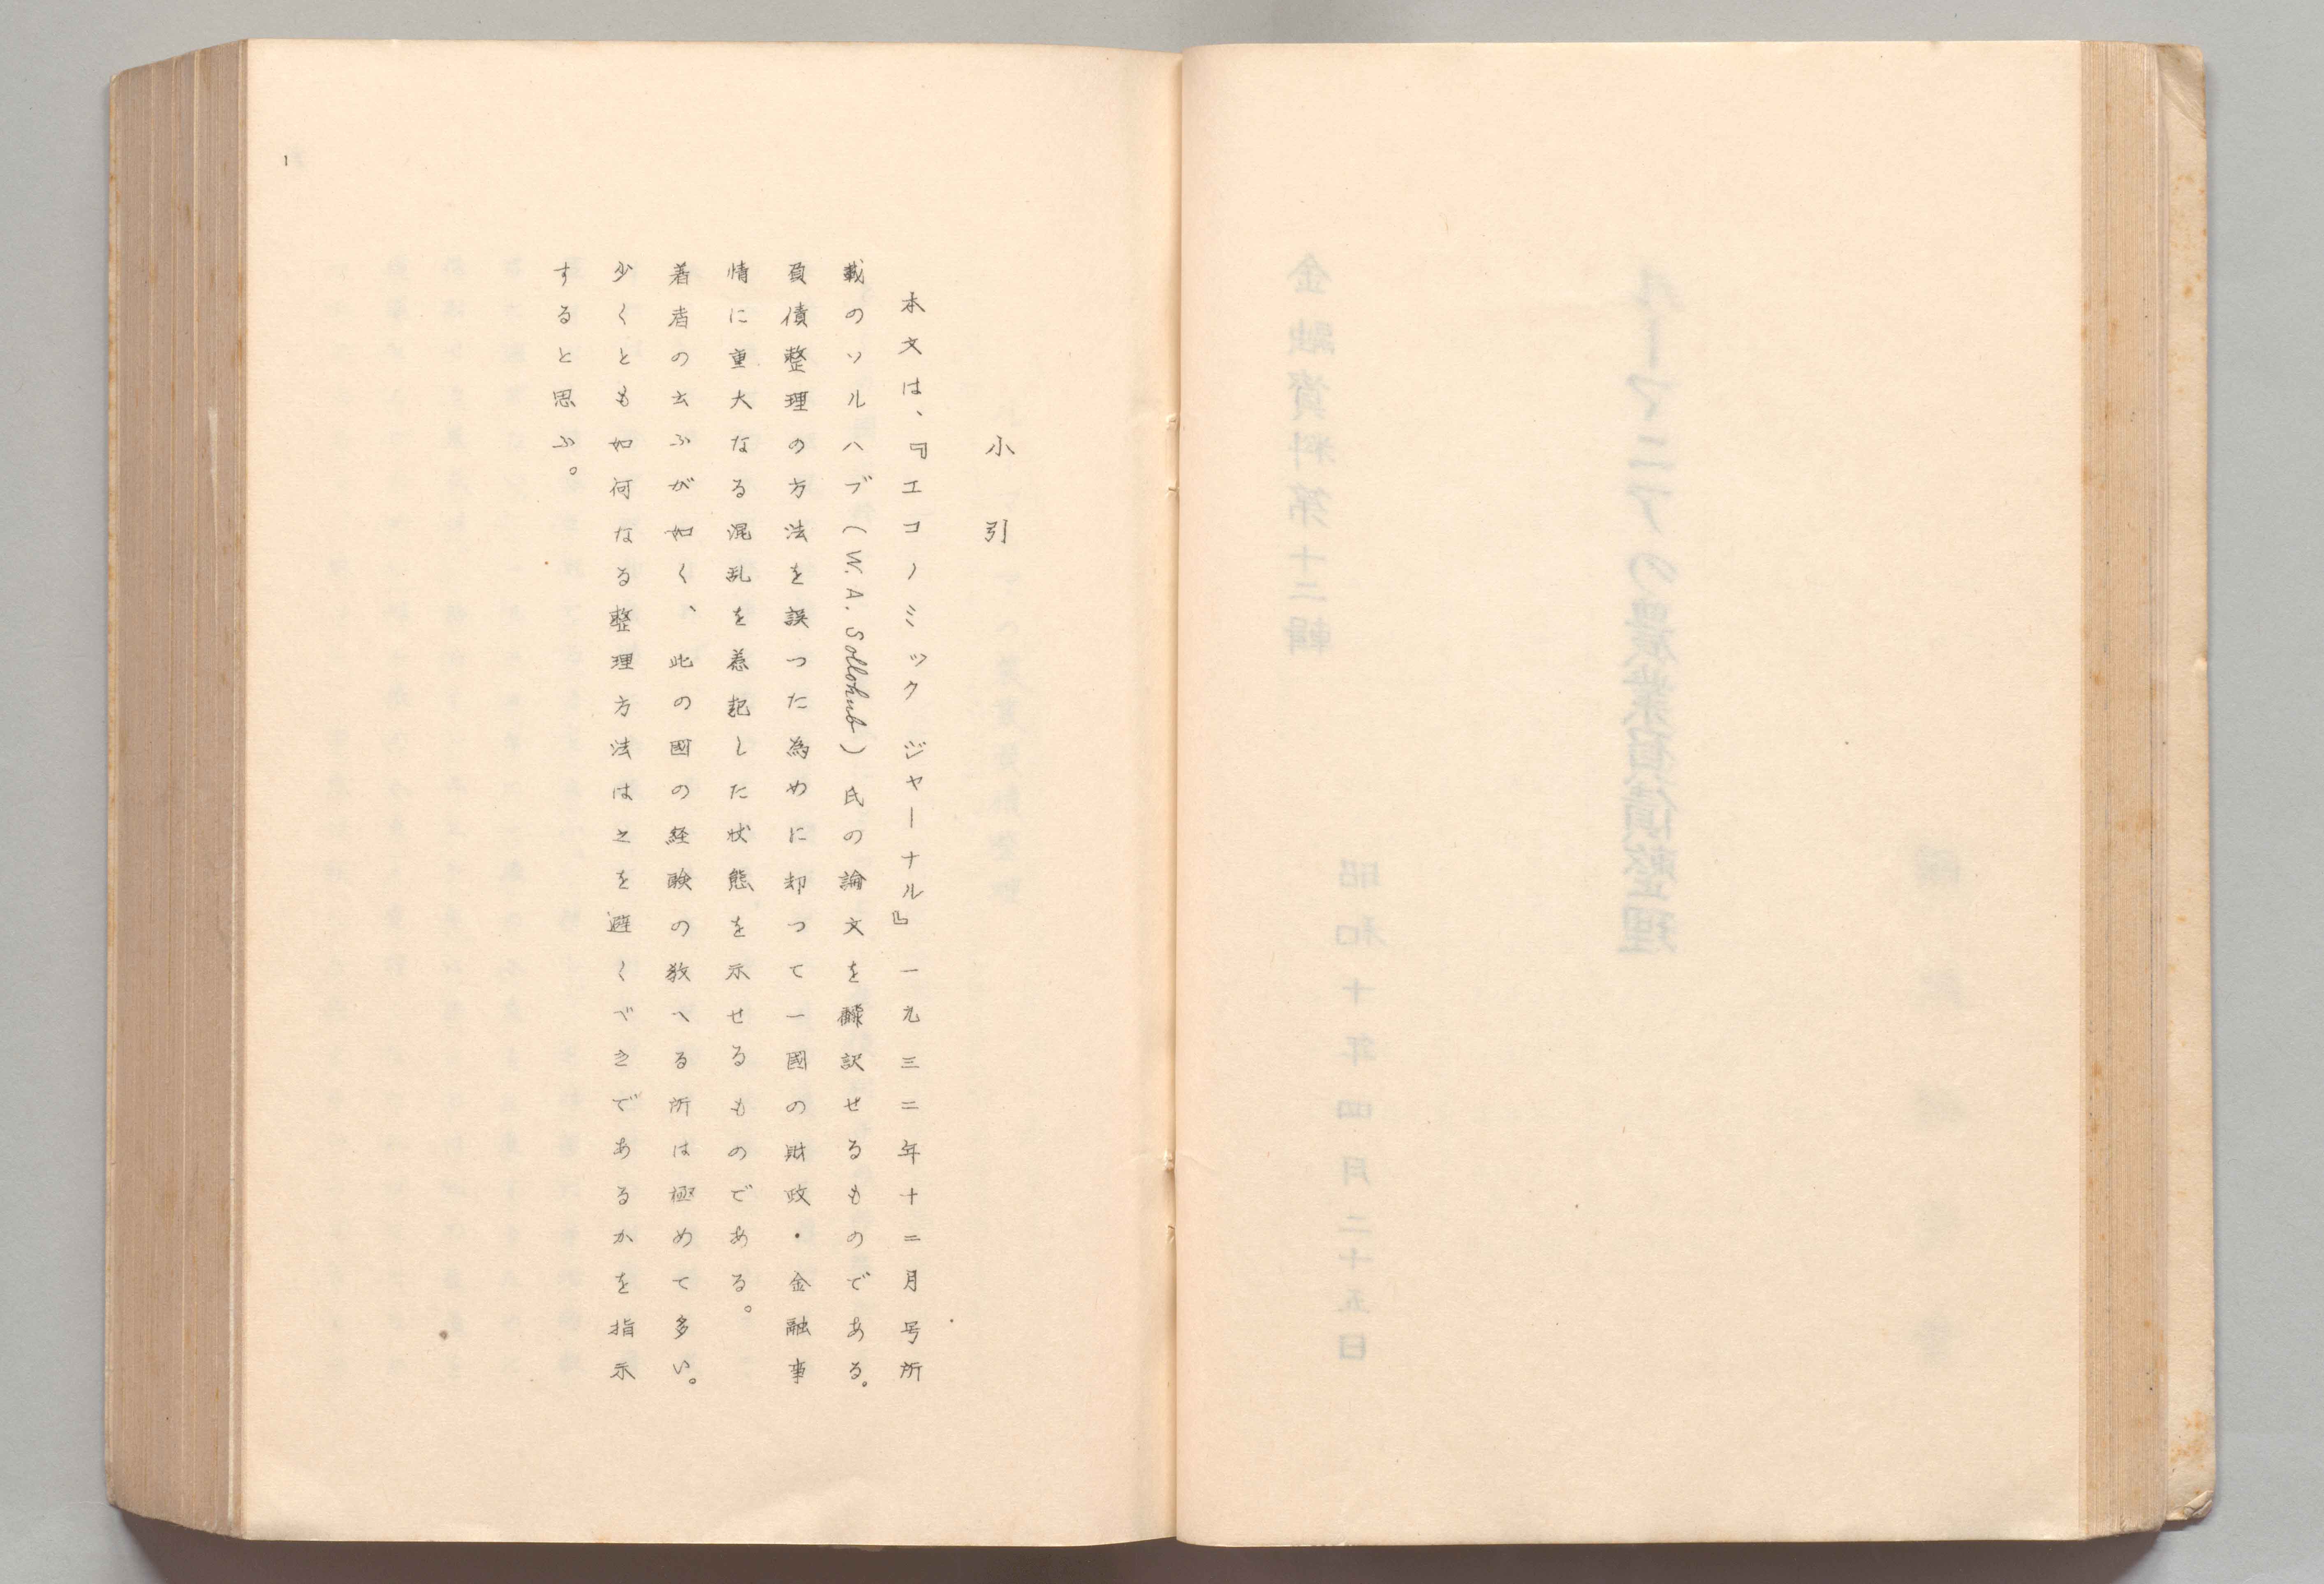 小引
本文は、『エコノミック ジャーナル』一九三二年十二月号所
載のソルハブ(W. A. Sollohub)氏の論文を飜訳せるものである。
負債整理の方法を誤つた為めに却つて一國の財政・金融事
情に重大なる混乱を惹起した状態を示せるものである。
著者の云ふが如く、此の國の経験の教へる所は極めて多い。
少くとも如何なる整理方法は之を避くべきであるかを指示
すると思ふ。
1